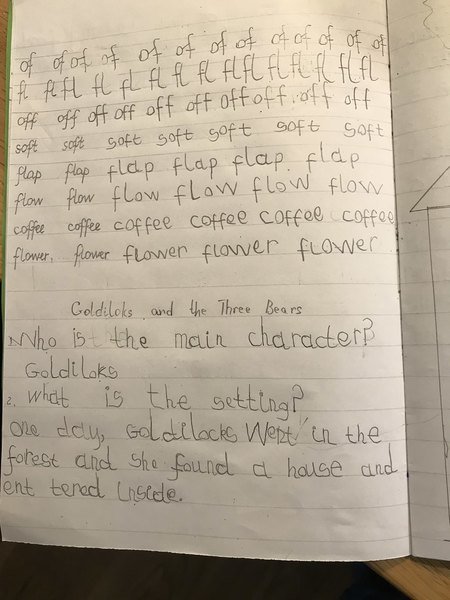 of of of of of of of of of of of of of
fl fl fl fl fl fl fl fl fl fl fl fl fl fl
off off off off off off off off off off
soft soft soft soft soft soft soft
flap flap flap flap flap flap
flow flow flow flow flow flow
coffee coffee coffee coffee coffee coffee
flower. flower flower flower flower
Goldiloks and the Three Bears
1. Who is the main character?
Goldiloks
2. What is the setting?
One day, Goldilocks Went in the
forest and she found a house and
ent tered inside.